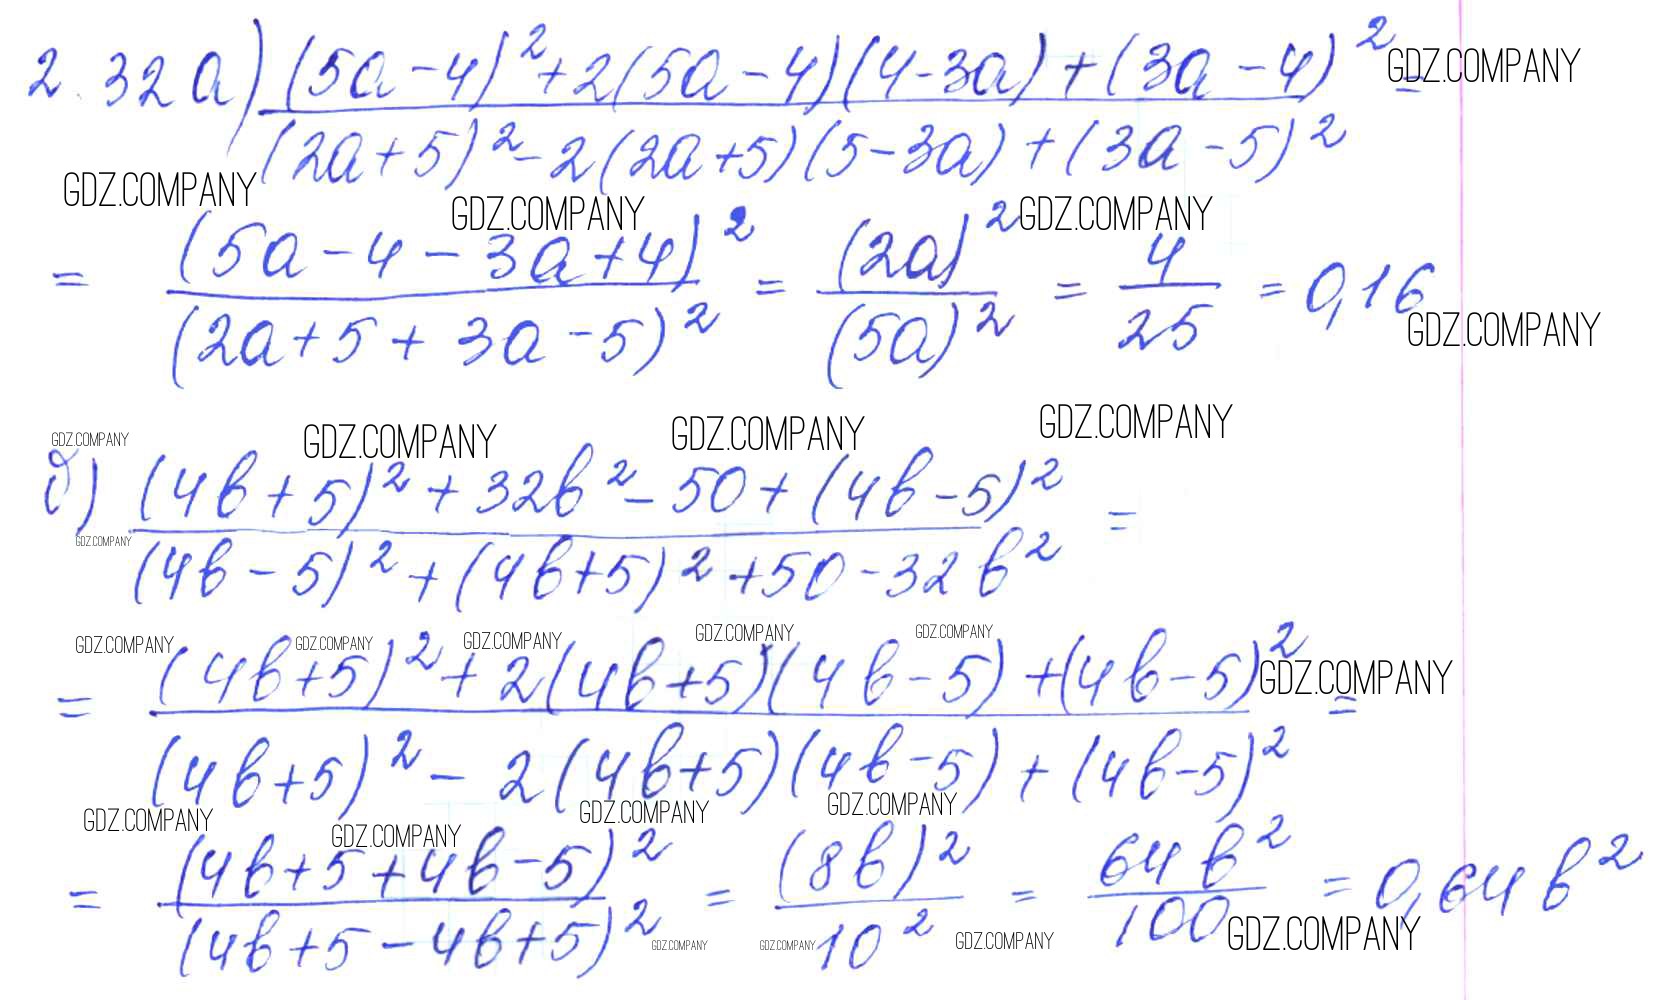 2.32 а) ((5a-4)² + 2(5a-4)(4-3a) + (3a-4)²) / ((2a+5)² - 2(2a+5)(5-3a) + (3a-5)²) = GDZ.COMPANY
GDZ.COMPANY GDZ.COMPANY GDZ.COMPANY
= (5a-4-3a+4)² / (2a+5+3a-5)² = (2a)² / (5a)² = 4/25 = 0,16
GDZ.COMPANY
GDZ.COMPANY GDZ.COMPANY GDZ.COMPANY GDZ.COMPANY
б) ((4b+5)² + 32b² - 50 + (4b-5)²) / ((4b-5)² + (4b+5)² + 50 - 32b²) =
GDZ.COMPANY
GDZ.COMPANY GDZ.COMPANY GDZ.COMPANY GDZ.COMPANY GDZ.COMPANY
= ((4b+5)² + 2(4b+5)(4b-5) + (4b-5)²) / ((4b+5)² - 2(4b+5)(4b-5) + (4b-5)²) = GDZ.COMPANY
GDZ.COMPANY GDZ.COMPANY GDZ.COMPANY GDZ.COMPANY
= (4b+5+4b-5)² / (4b+5-4b+5)² = (8b)² / 10² = 64b² / 100 = 0,64b²
GDZ.COMPANY GDZ.COMPANY GDZ.COMPANY GDZ.COMPANY